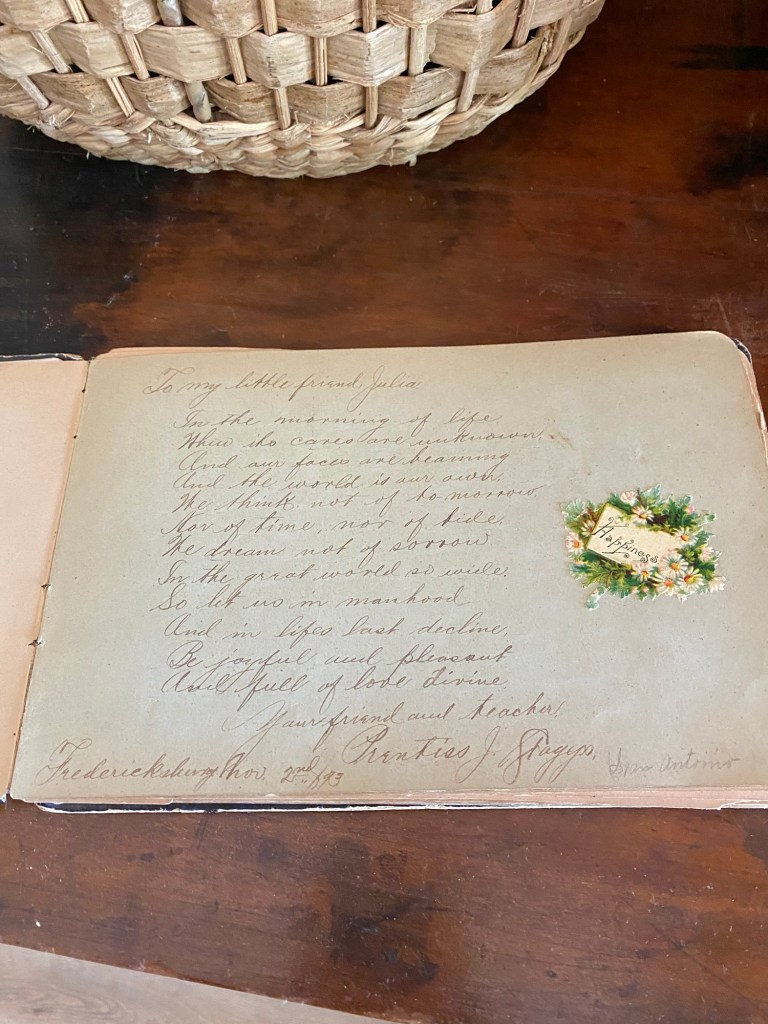 To my little friend, Julia
In the morning of life
When its cares are unknown.
And our faces are beaming
And the world is our own.
We think not of to morrow.
Nor of time, nor of tide.
We dream not of sorrow
In the great world so wide.
So let us in manhood
And in lifes last decline,
Be joyful and pleasant
And full of love divine
Your friend and teacher,
Prentiss J.
Fredericksburg Nov. 2nd /93
San Antonio
Happiness